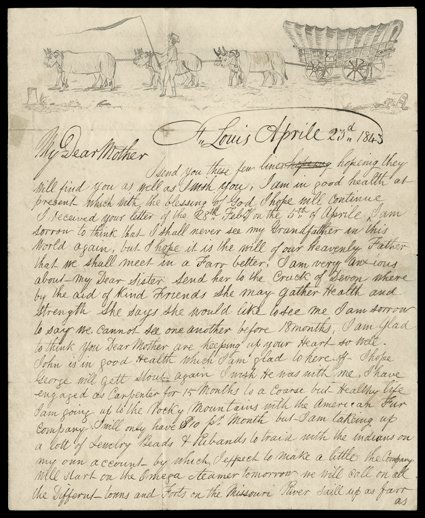 St Louis Aprile 23d 1843
My Dear Mother
I send you these few lines hopeing hopeing they
will find you as well as I wish you, I am in good health at
present which with the blessing of God I hope will continue
I received your letter of the 28th Feby on the 5th of Aprile, I am
sorrow to think that I shall never see my Grandfather in this
World again, but I hope it is the will of our Heavenly Father
that we shall meet in a Farr better, I am very anxious
about my Dear Sister send her to the of Devon where
by the aid of Kind Friends she may gather Health and
Strength She says she would like to see me I am sorrow
to say we cannot see one another before 18 months, I am Glad
to think you Dear Mother are keeping up your Heart so well
John is in good Health which I am glad to here of I hope
George will gett stout again I wish He was with me. I have
engaged as Carpenter for 15 Months to a Coarse but Healthy life
I am going up to the Rocky Mountains with the American Fur
Company I will only have $10 pr Month but I am takeing up
a lott of Jewelry Beads & Ribands to traid with the indians on
my own account by which I expect to make a little the Company
will start on the Omega steamer tomorrow we will call on all
the Differnt Towns and Forts on the Missouri River Saill up as farr
as